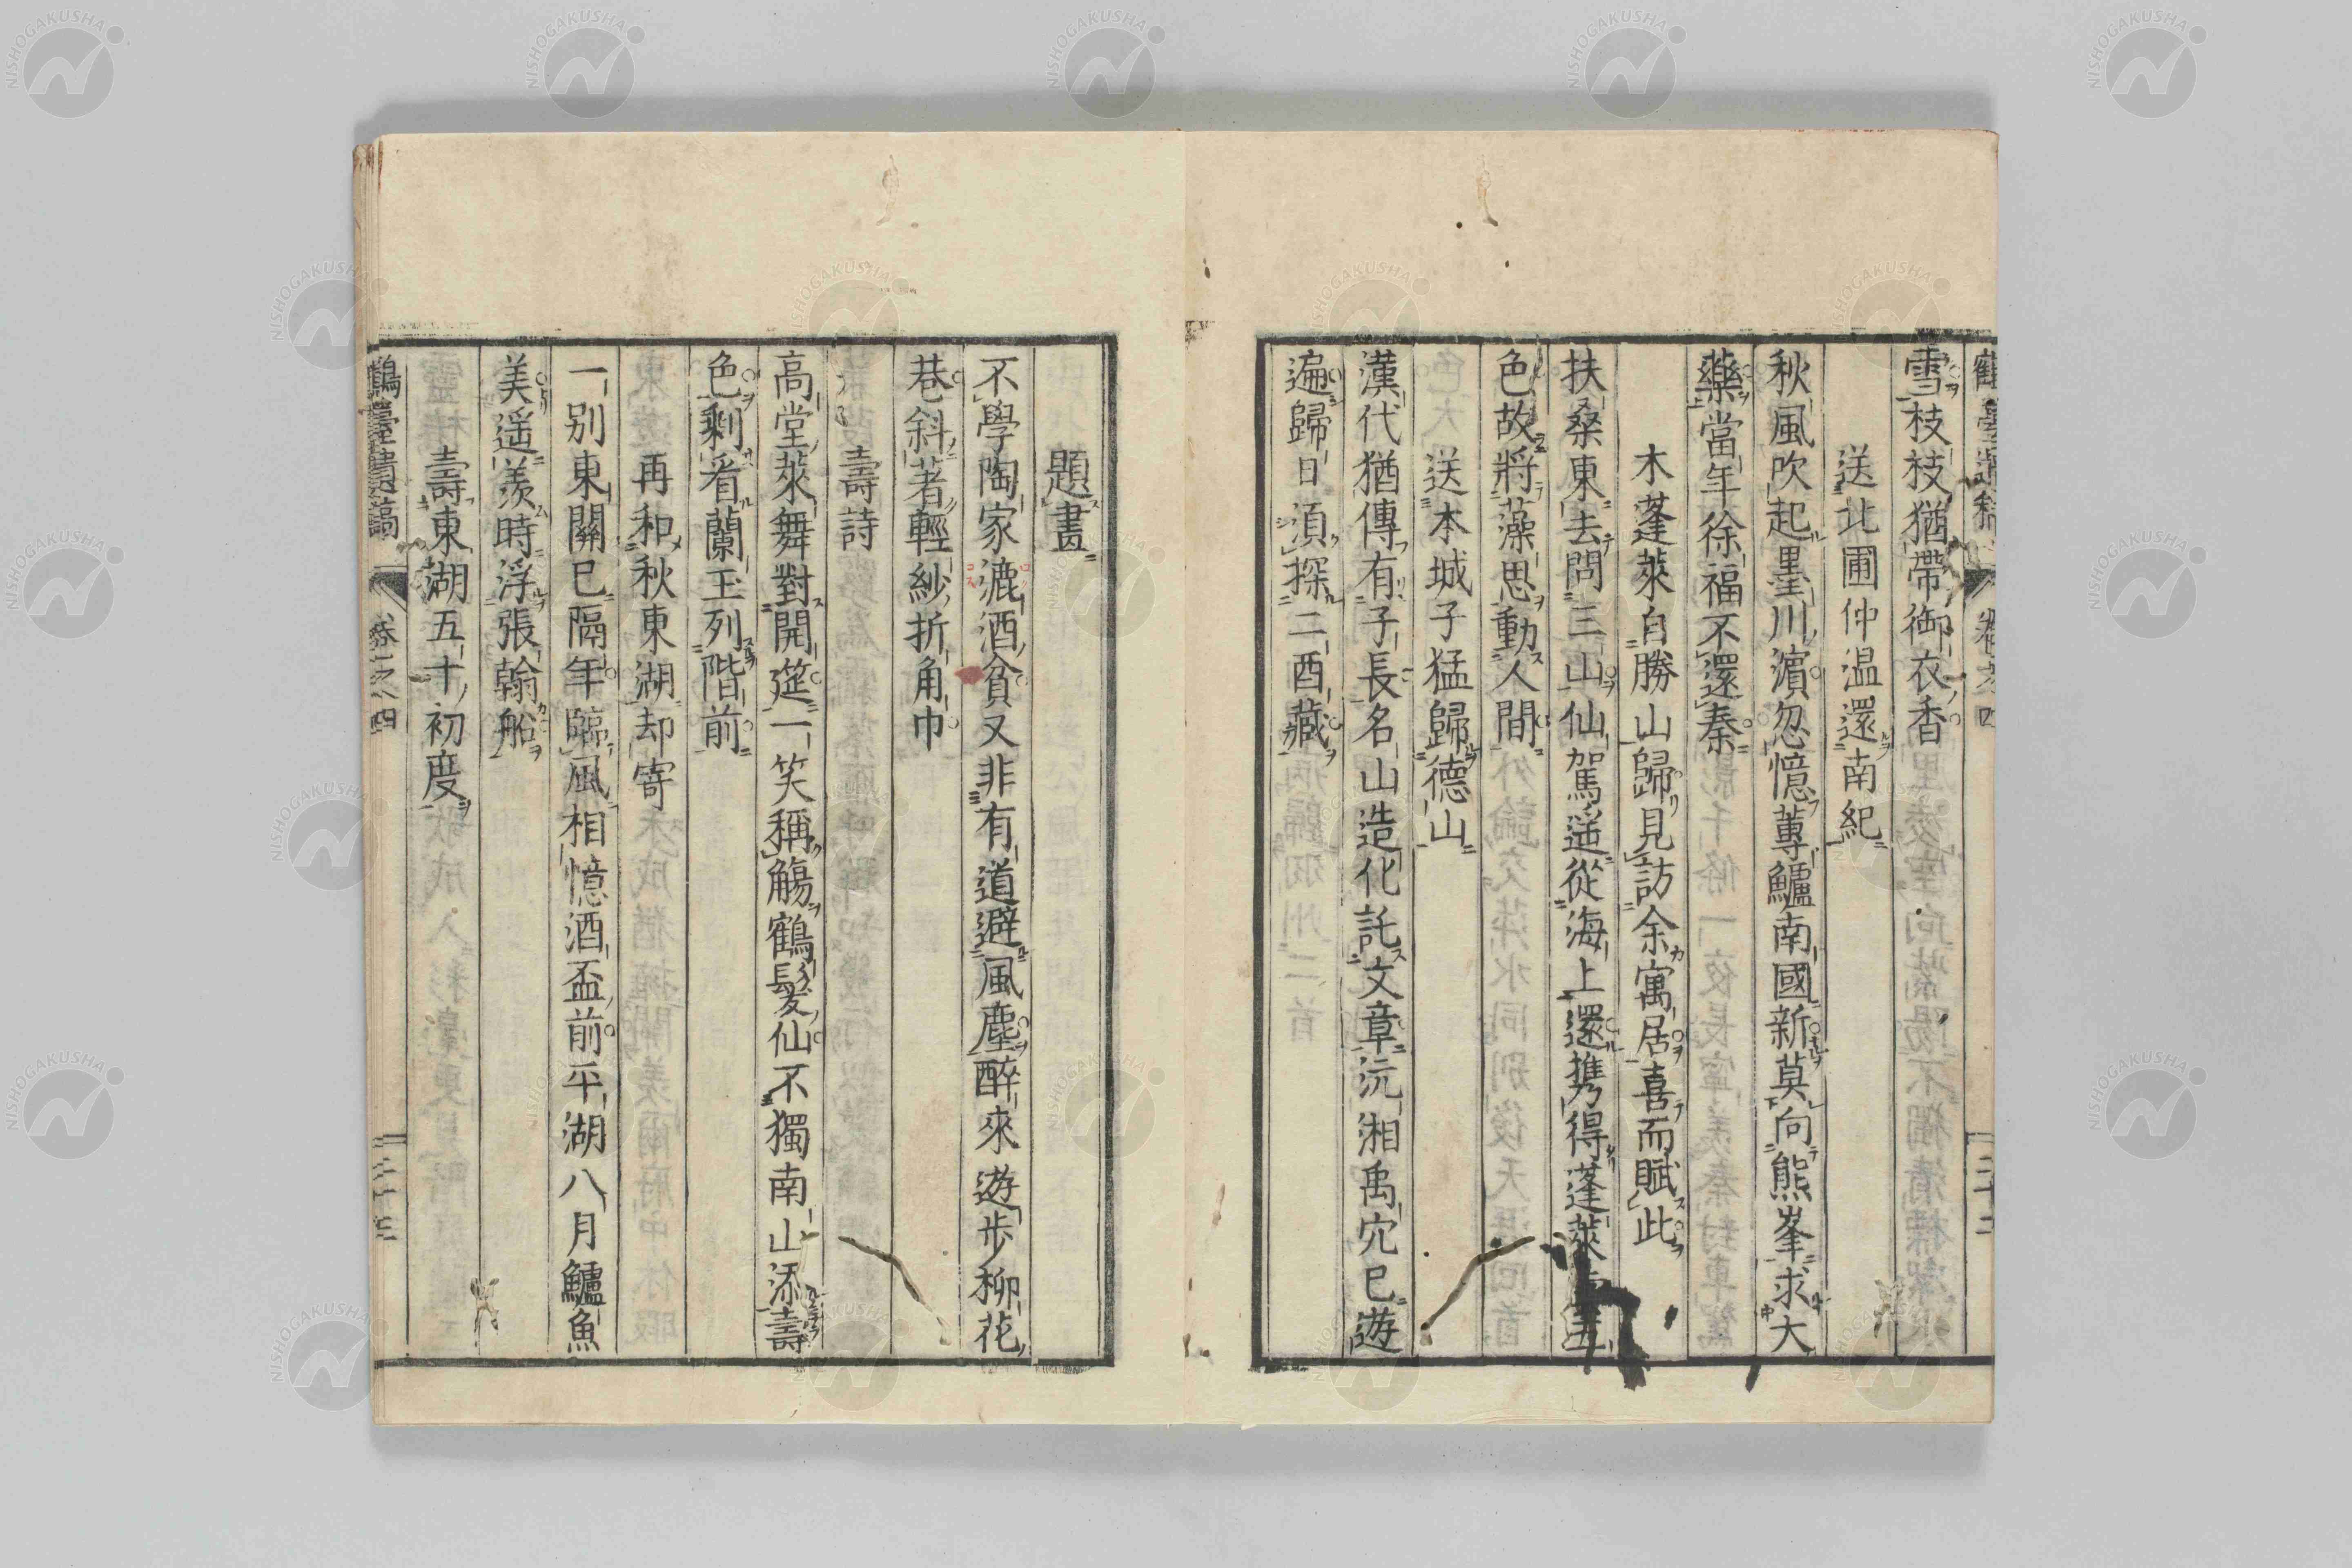 雪枝枝猶帶御衣香
送北圃仲温還南紀
秋風吹起墨川濵忽憶蓴鱸南國新莫向熊峯求大
藥當年徐福不還秦
木蓬萊自勝山歸見訪余寓居喜而賦此
扶桑東去問三山仙駕遥從海上還携得蓬萊五
色故將藻思動人間
送本城子猛歸德山
漢代猶傳有子長名山造化託文章沅湘禹穴已遊
遍歸日須探二酉藏
題畫
不學陶家漉酒貧又非有道避風塵醉來遊步柳花
巷斜著輕紗折角巾
壽詩
高堂萊舞對開筵一笑稱觴鶴髮仙不獨南山添壽
色剩看蘭玉列階前
再和秋東湖却寄
一別東關已隔年臨風相憶酒盃前平湖八月鱸魚
美遥羨時浮張翰船
壽東湖五十初度
鶴臺遺稿 卷之四 二十三
NISHOGAKUSHA